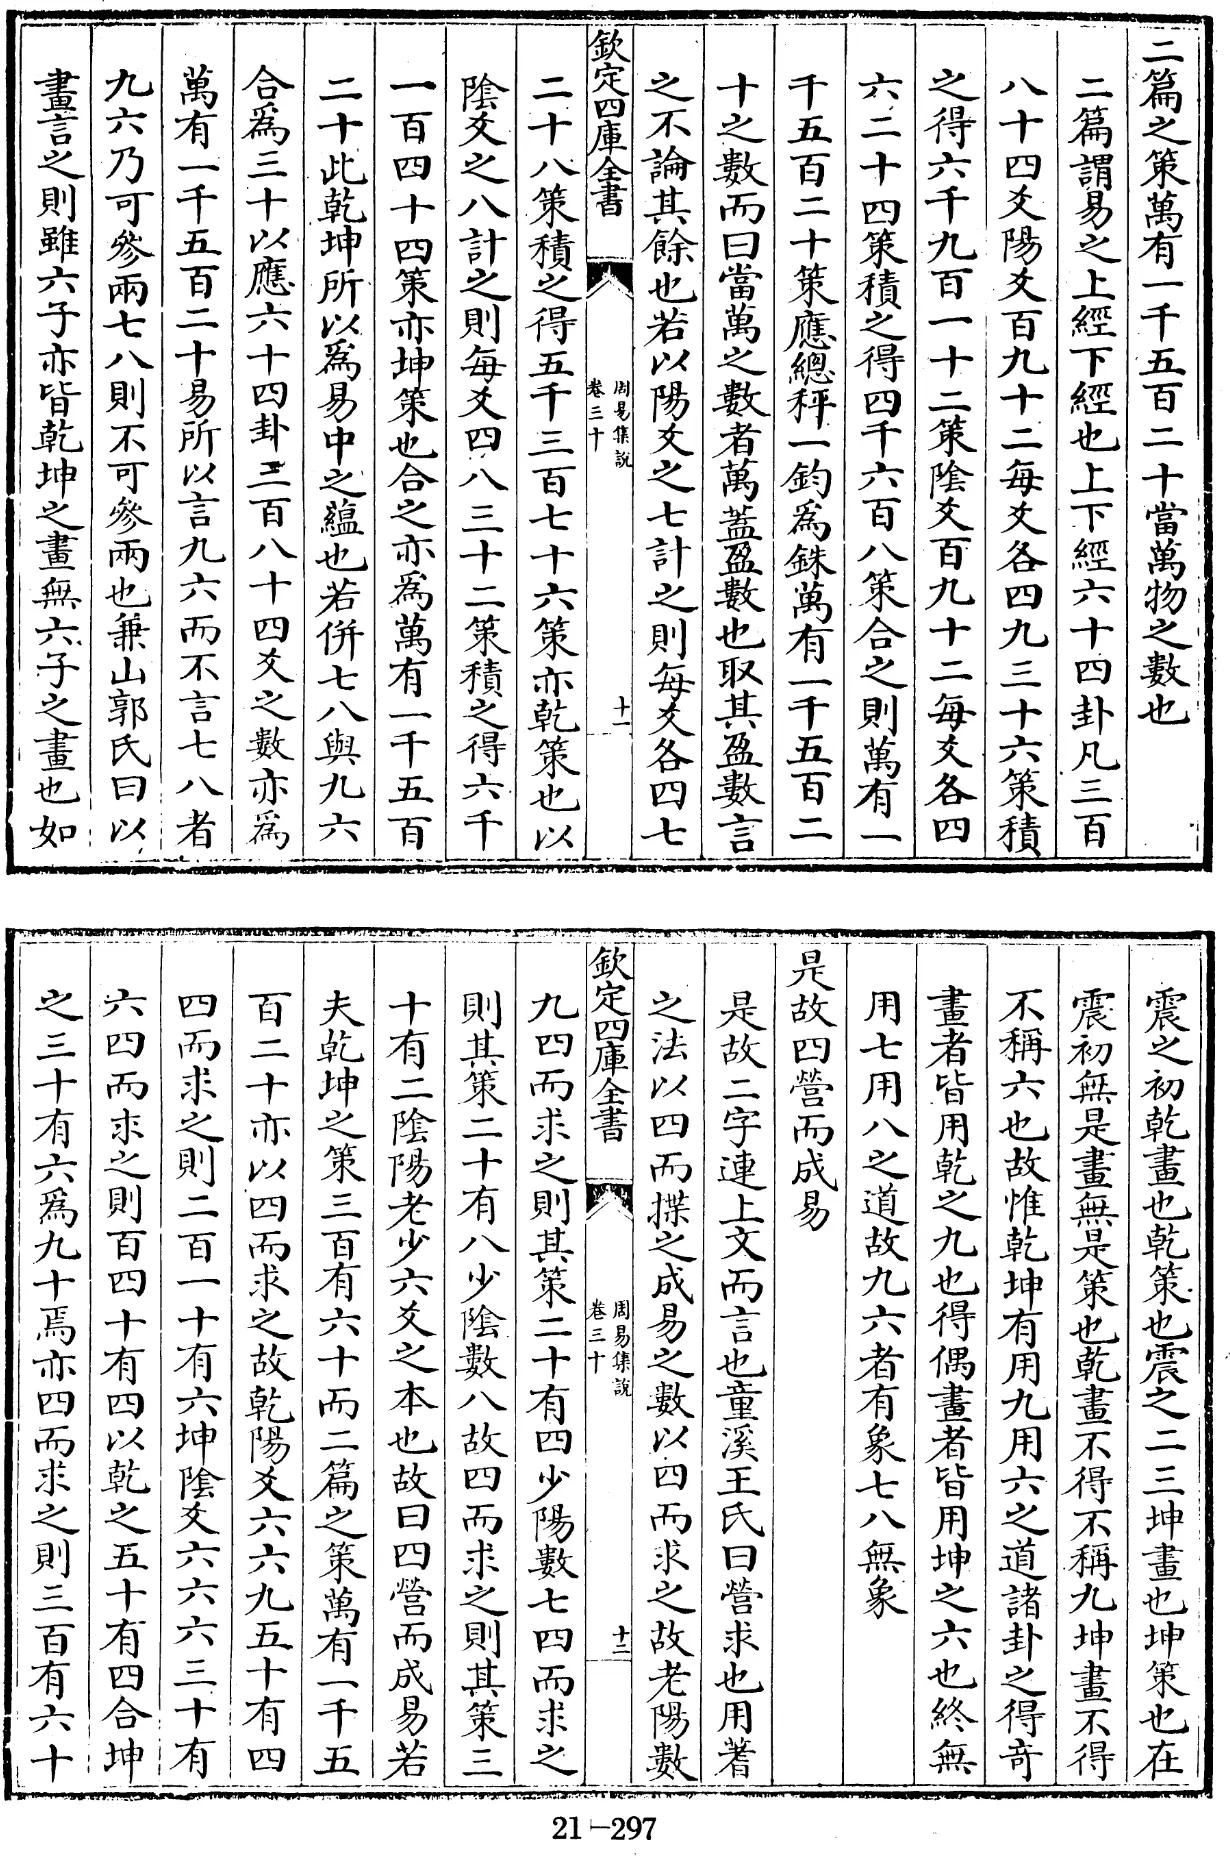 二篇之策萬有一千五百二十當萬物之數也
二篇謂易之上經下經也上下經六十四卦凡三百
八十四爻陽爻百九十二每爻各四九三十六策積
之得六千九百一十二策陰爻百九十二每爻各四
六二十四策積之得四千六百八策合之則萬有一
千五百二十策應總秤一鈞爲銖萬有一千五百二
十之數而曰當萬之數者萬蓋盈數也取其盈數言
之不論其餘也若以陽爻之七計之則每爻各四七
欽定四庫全書
周易集說
卷三十
十一
二十八策積之得五千三百七十六策亦乾策也以
陰爻之八計之則每爻四八三十二策積之得六千
一百四十四策亦坤策也合之亦爲萬有一千五百
二十此乾坤所以爲易中之蘊也若併七八與九六
合爲三十以應六十四卦三百八十四爻之數亦爲
萬有一千五百二十易所以言九六而不言七八者
九六乃可參兩七八則不可參兩也兼山郭氏曰以
畫言之則雖六子亦皆乾坤之畫無六子之畫也如
震之初乾畫也乾策也震之二三坤畫也坤策也在
震初無是畫無是策也乾畫不得不稱九坤畫不得
不稱六也故惟乾坤有用九用六之道諸卦之得奇
畫者皆用乾之九也得偶畫者皆用坤之六也終無
用七用八之道故九六者有象七八無象
是故四營而成易
是故二字連上文而言也童溪王氏曰營求也用蓍
之法以四而揲之成易之數以四而求之故老陽數
欽定四庫全書
周易集說
卷三十
十二
九四而求之則其策二十有四少陽數七四而求之
則其策二十有八少陰數八故四而求之則其策三
十有二陰陽老少六爻之本也故曰四營而成易若
夫乾坤之策三百有六十而二篇之策萬有一千五
百二十亦以四而求之故乾陽爻六六九五十有四
四而求之則二百一十有六坤陰爻六六六三十有
六四而求之則百四十有四以乾之五十有四合坤
之三十有六爲九十焉亦四而求之則三百有六十
21-297